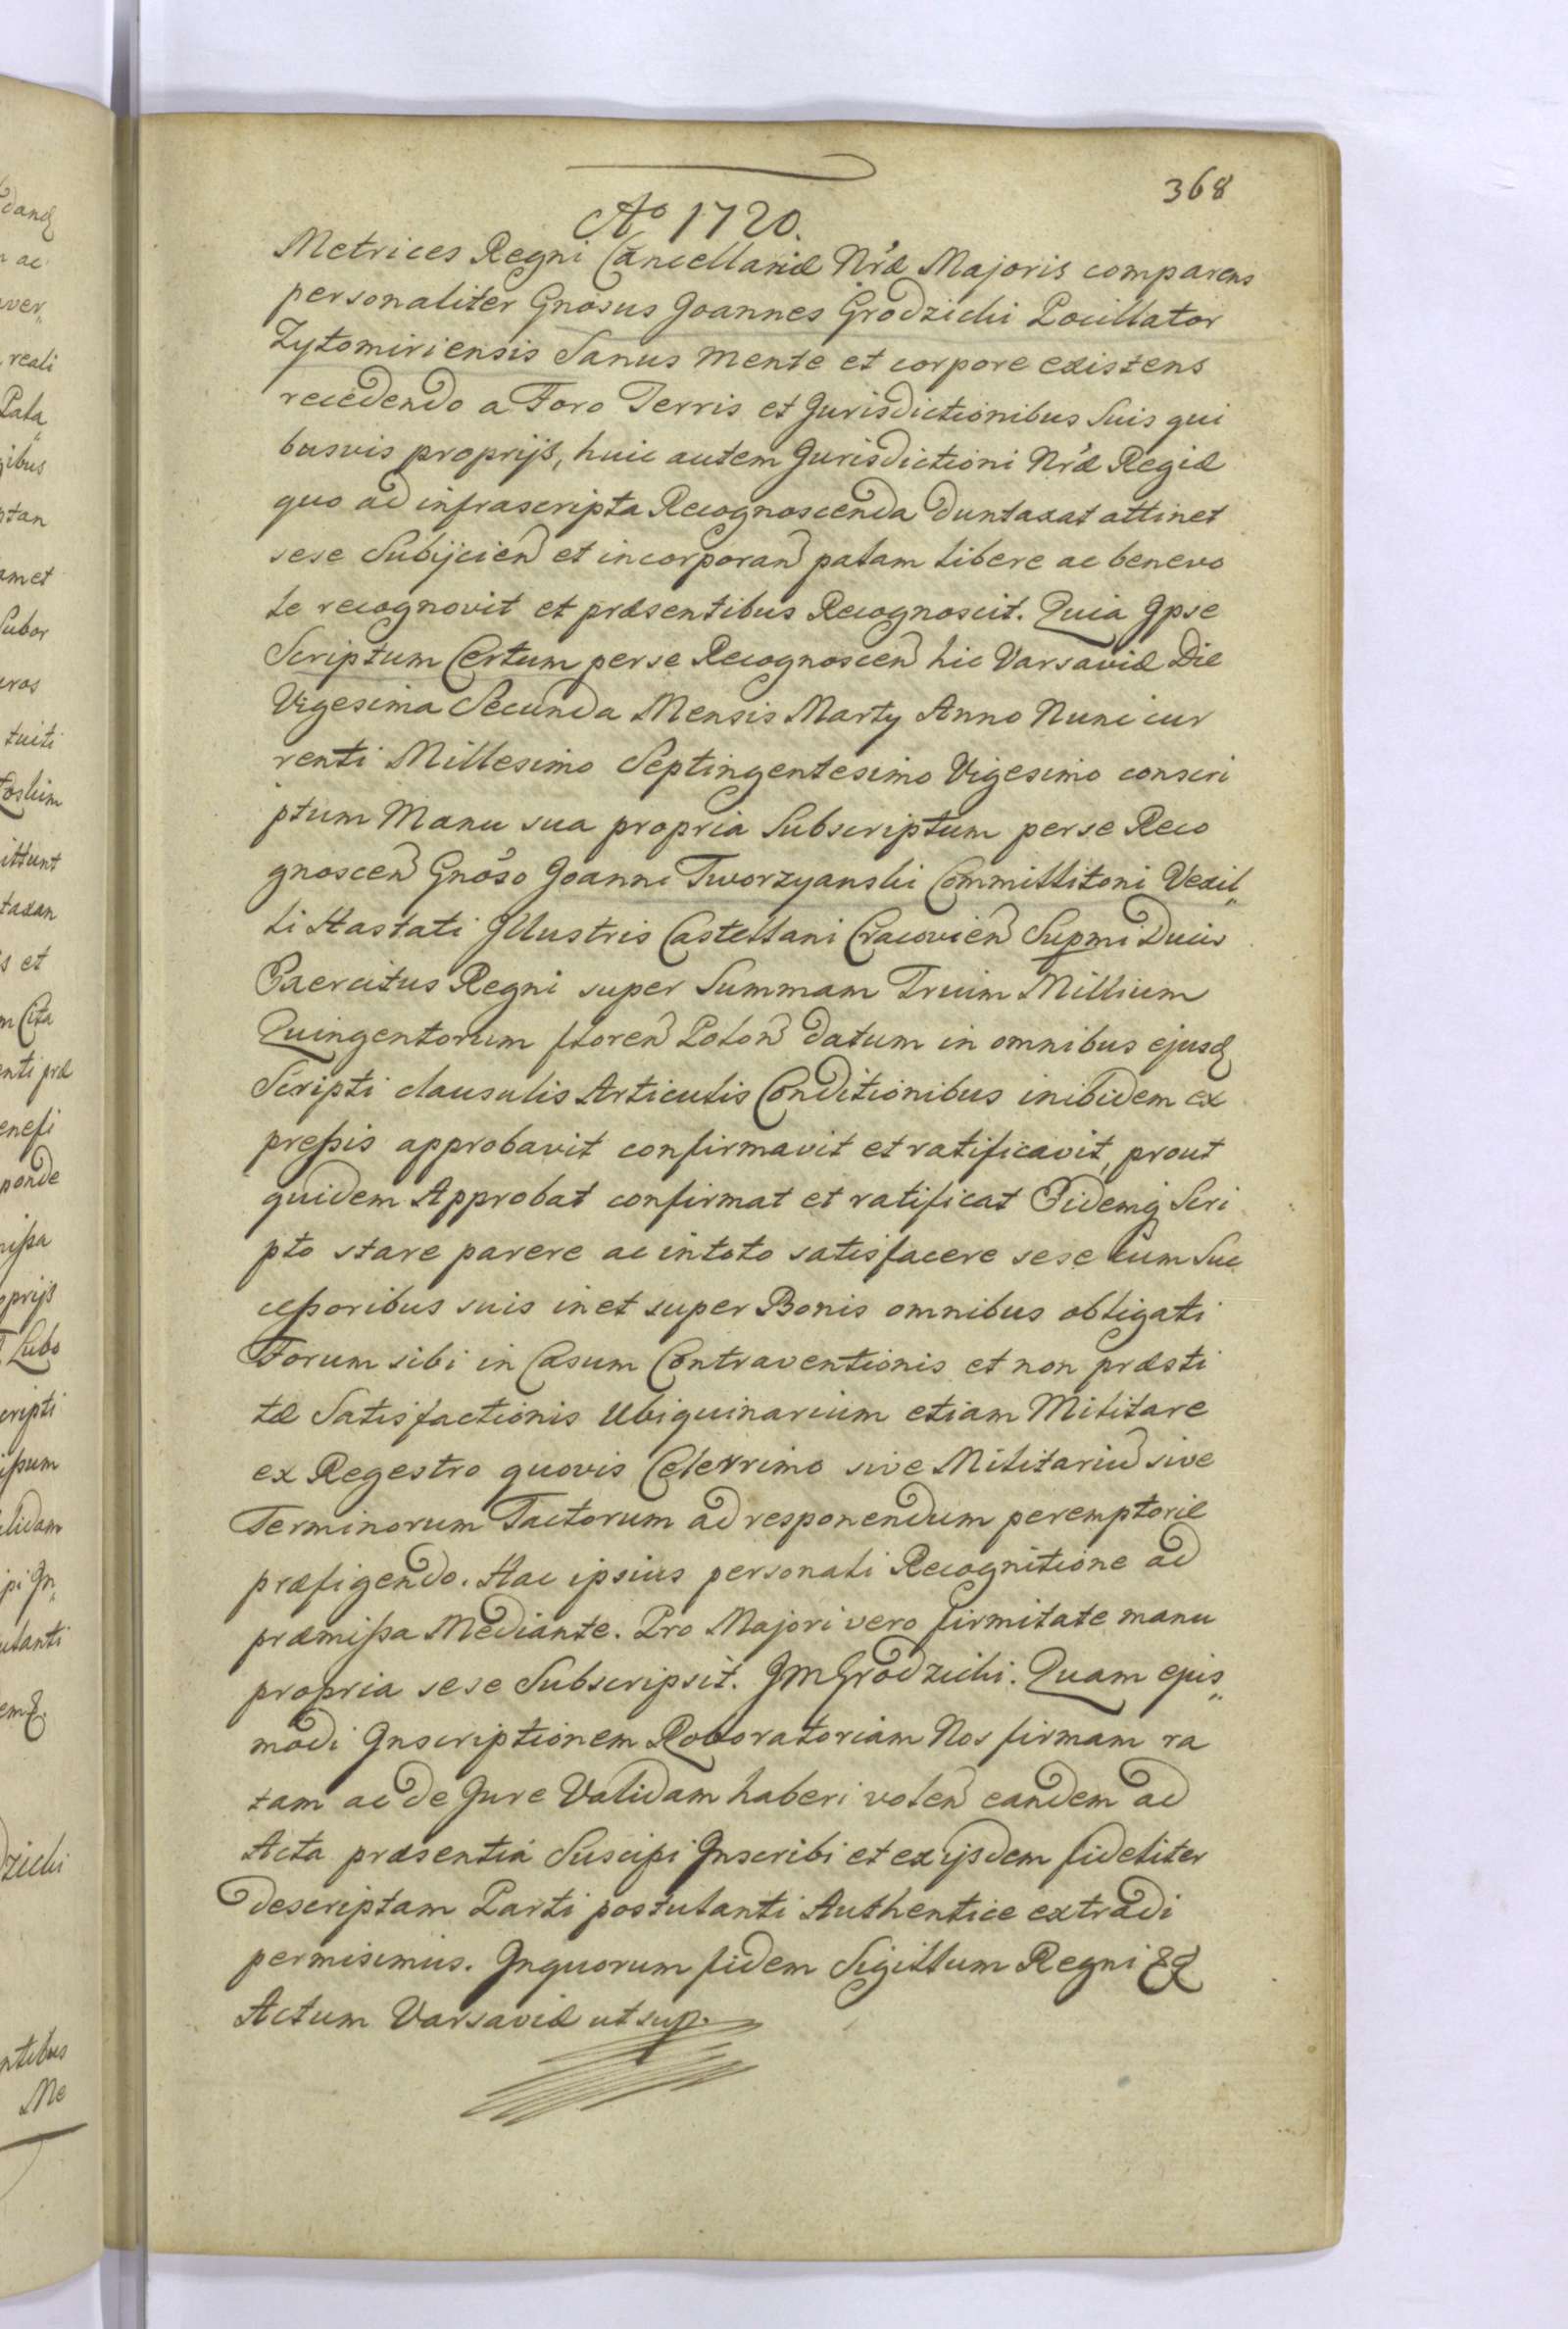 368
Aº 1720.
Metrices Regni Cancellariæ Nr̃æ Majoris comparens
personaliter Gnosus Joannes Grodzicki Pocillator
Zytomiriensis Sanus mente et corpore existens
recedendo a Foro Terris et Jurisdictionibus Suis qui
busvis proprijs, huic autem Jurisdictioni Nr̃æ Regiæ
quo ad infrascripta Recognoscenda duntaxat attinet
sese Subijcien et incorporan palam libere ac benevo
le recognovit et præsentibus Recognoscit. Quia Ipse
Scriptum Certum per se Recognoscen hic Varsaviæ Die
Vigesima Secunda Mensis Marty Anno Nunc cur
renti Millesimo Septingentesimo Vigesimo conscri
ptum Manu sua propria Subscriptum per se Reco
gnoscen Gnoso Joanni Tworzyanski Commilitoni Vexil„
li Hastati Illustris Castellani Cracovien Supmi Ducis
Exercitus Regni super Summam Trium Millium
Quingentorum floren Polon datum in omnibus ejusd
Scripti clausulis Articulis Conditionibus inibidem ex
pressis approbavit confirmavit et ratificavit, prout
quidem Approbat confirmat et ratificat Eidemq Scri
pto stare parere ac in toto satisfacere sese cum Suc
cessoribus suis in et super Bonis omnibus obligati
Forum sibi in Casum Contraventionis et non præsti
tæ Satisfactionis Ubiquinarium etiam Militare
ex Regestro quovis Celerrimo sive Militarium sive
Terminorum Tactorum ad responendum peremptorie
præfigendo. Hac ipsius personali Recognitione ad
præmissa Mediante. Pro Majori vero firmitate manu
propria sese Subscripsit. JMGrodzicki. Quam ejus„
modi Inscriptionem Roboratoriam Nos firmam ra
tam ac de Jure Validam haberi volen eandem ad
Acta præsentia Suscipi Inscribi et ex ijsdem fideliter
descriptam Parti postulanti Authentice extradi
permisimus. In quorum fidem Sigillum Regni &c
Actum Varsaviæ ut sup.